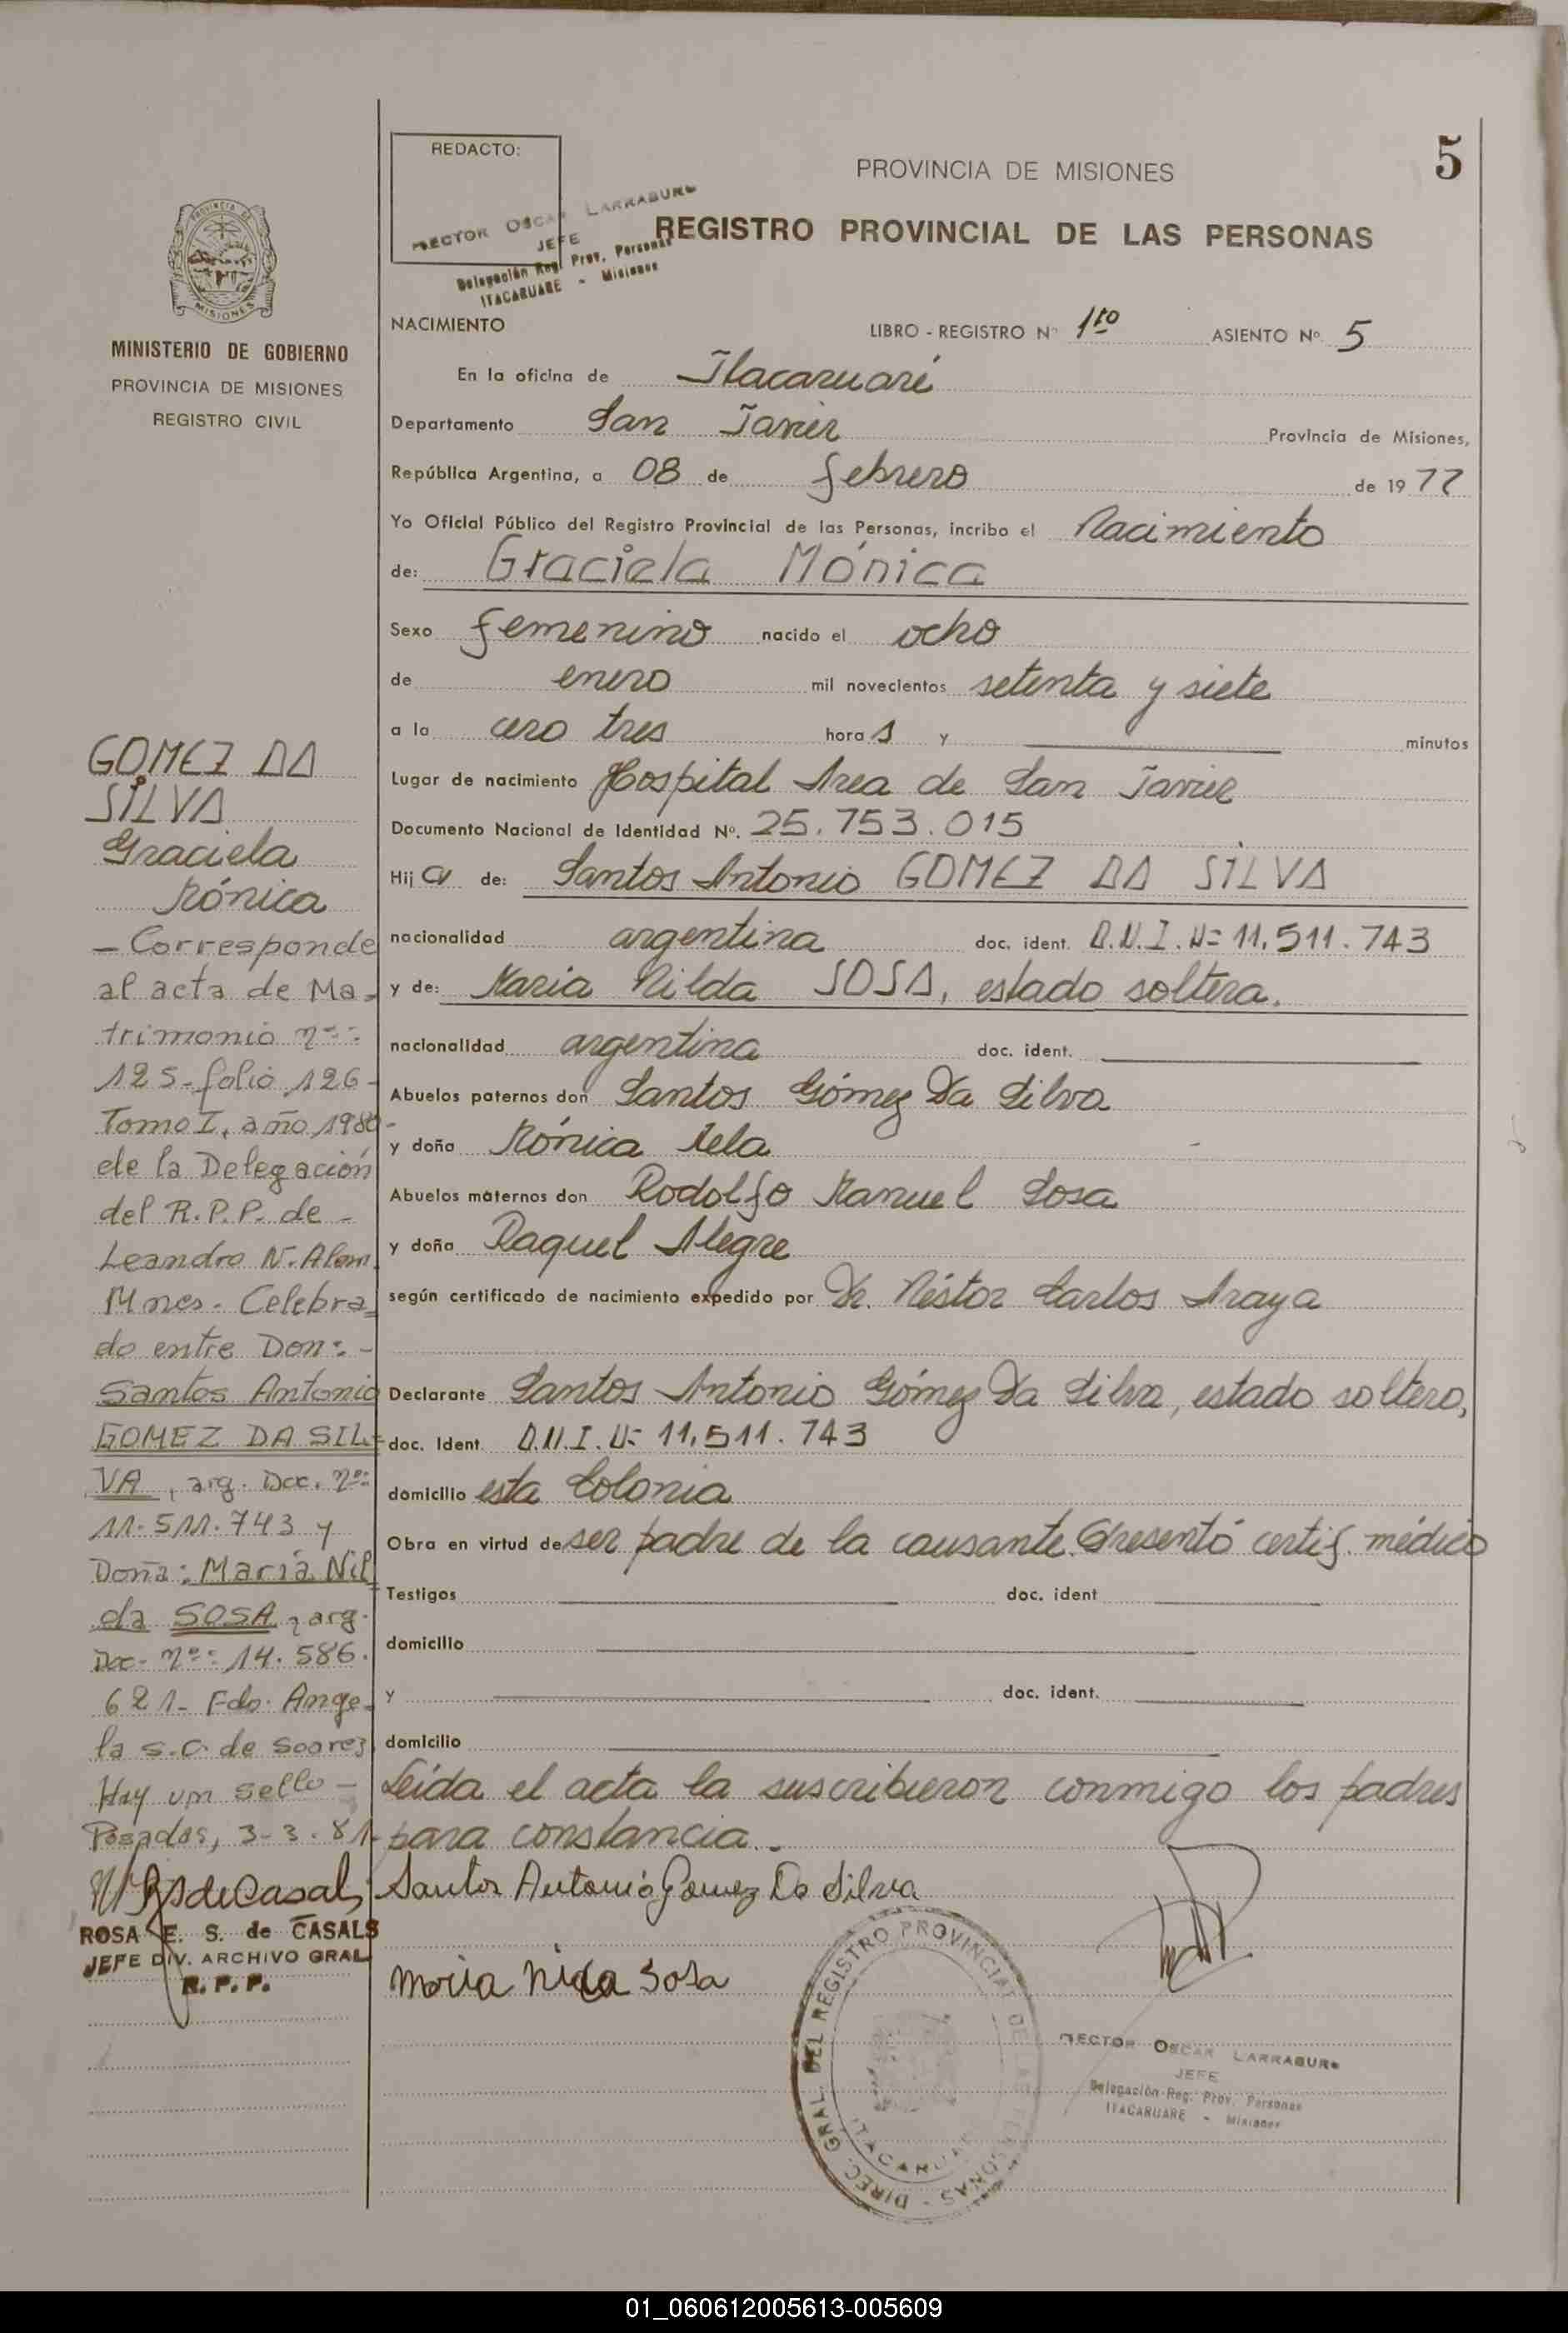 5
REDACTO:
HECTOR OSCAR LARRABURU
JEFE
Delegación Reg. Prov. Personas
ITACARUARE - Misiones
PROVINCIA DE MISIONES
REGISTRO PROVINCIAL DE LAS PERSONAS
PROVINCIA DE
MISIONES
MINISTERIO DE GOBIERNO
PROVINCIA DE MISIONES
REGISTRO CIVIL
NACIMIENTO LIBRO - REGISTRO Nº 1ro ASIENTO Nº 5
En la oficina de Itacaruaré
Departamento San Javier Provincia de Misiones,
República Argentina, a 08 de febrero de 1977
Yo Oficial Público del Registro Provincial de las Personas, incribo el Nacimiento
de: Graciela Mónica
Sexo femenino nacido el ocho
de enero mil novecientos setenta y siete
a la cero tres hora s y minutos
Lugar de nacimiento Hospital Area de San Javier
Documento Nacional de Identidad Nº. 25.753.015
Hij a de: Santos Antonio GOMEZ DA SILVA
nacionalidad argentina doc. ident. D.N.I. Nº 11.511.743
y de: Maria Nilda SOSA, estado soltera.
nacionalidad argentina doc. ident.
Abuelos paternos don Santos Gómez Da Silva
y doña Mónica
Abuelos maternos don Rodolfo Manuel Sosa
y doña Raquel Alegre
según certificado de nacimiento expedido por Dr. Néstor Carlos Araya
Declarante Santos Antonio Gómez Da Silva, estado soltero,
doc. Ident. D.N.I. Nº 11.511.743
domicilio esta Colonia
Obra en virtud de ser padre de la causante. Presentó certif. médico
Testigos doc. ident
domicilio
y doc. ident.
domicilio
Leida el acta la suscribieron conmigo los padres
para constancia.-
Santos Antonio Gomez Da Silva
Maria Nilda Sosa
GOMEZ DA
SILVA
Graciela
Mónica
- Corresponde
al acta de Ma-
trimonio nº:
125- folio 126-
Tomo I, año 1980-
de la Delegación
del R.P.P. de -
Leandro N. Alem
Mnes. Celebra=
do entre Don: -
Santos Antonio
GOMEZ DA SIL=
VA, arg. Doc. nº:
11.511.743 y
Doña: María Nil=
da SOSA, arg.
Doc- nº: 14.586.
621- Fdo: Ange-
la S.C. de Soarez
Hay un sello -
Posadas, 3-3-81-
ROSA E. S. de CASALS
JEFE DIV. ARCHIVO GRAL
R. P. P.
DIREC. GRAL. DEL REGISTRO PROVINCIAL DE LAS PERSONAS -
ITACARUARE
HECTOR OSCAR LARRABURU
JEFE
Delegación Reg. Prov. Personas
ITACARUARE - Misiones
01_060612005613-005609